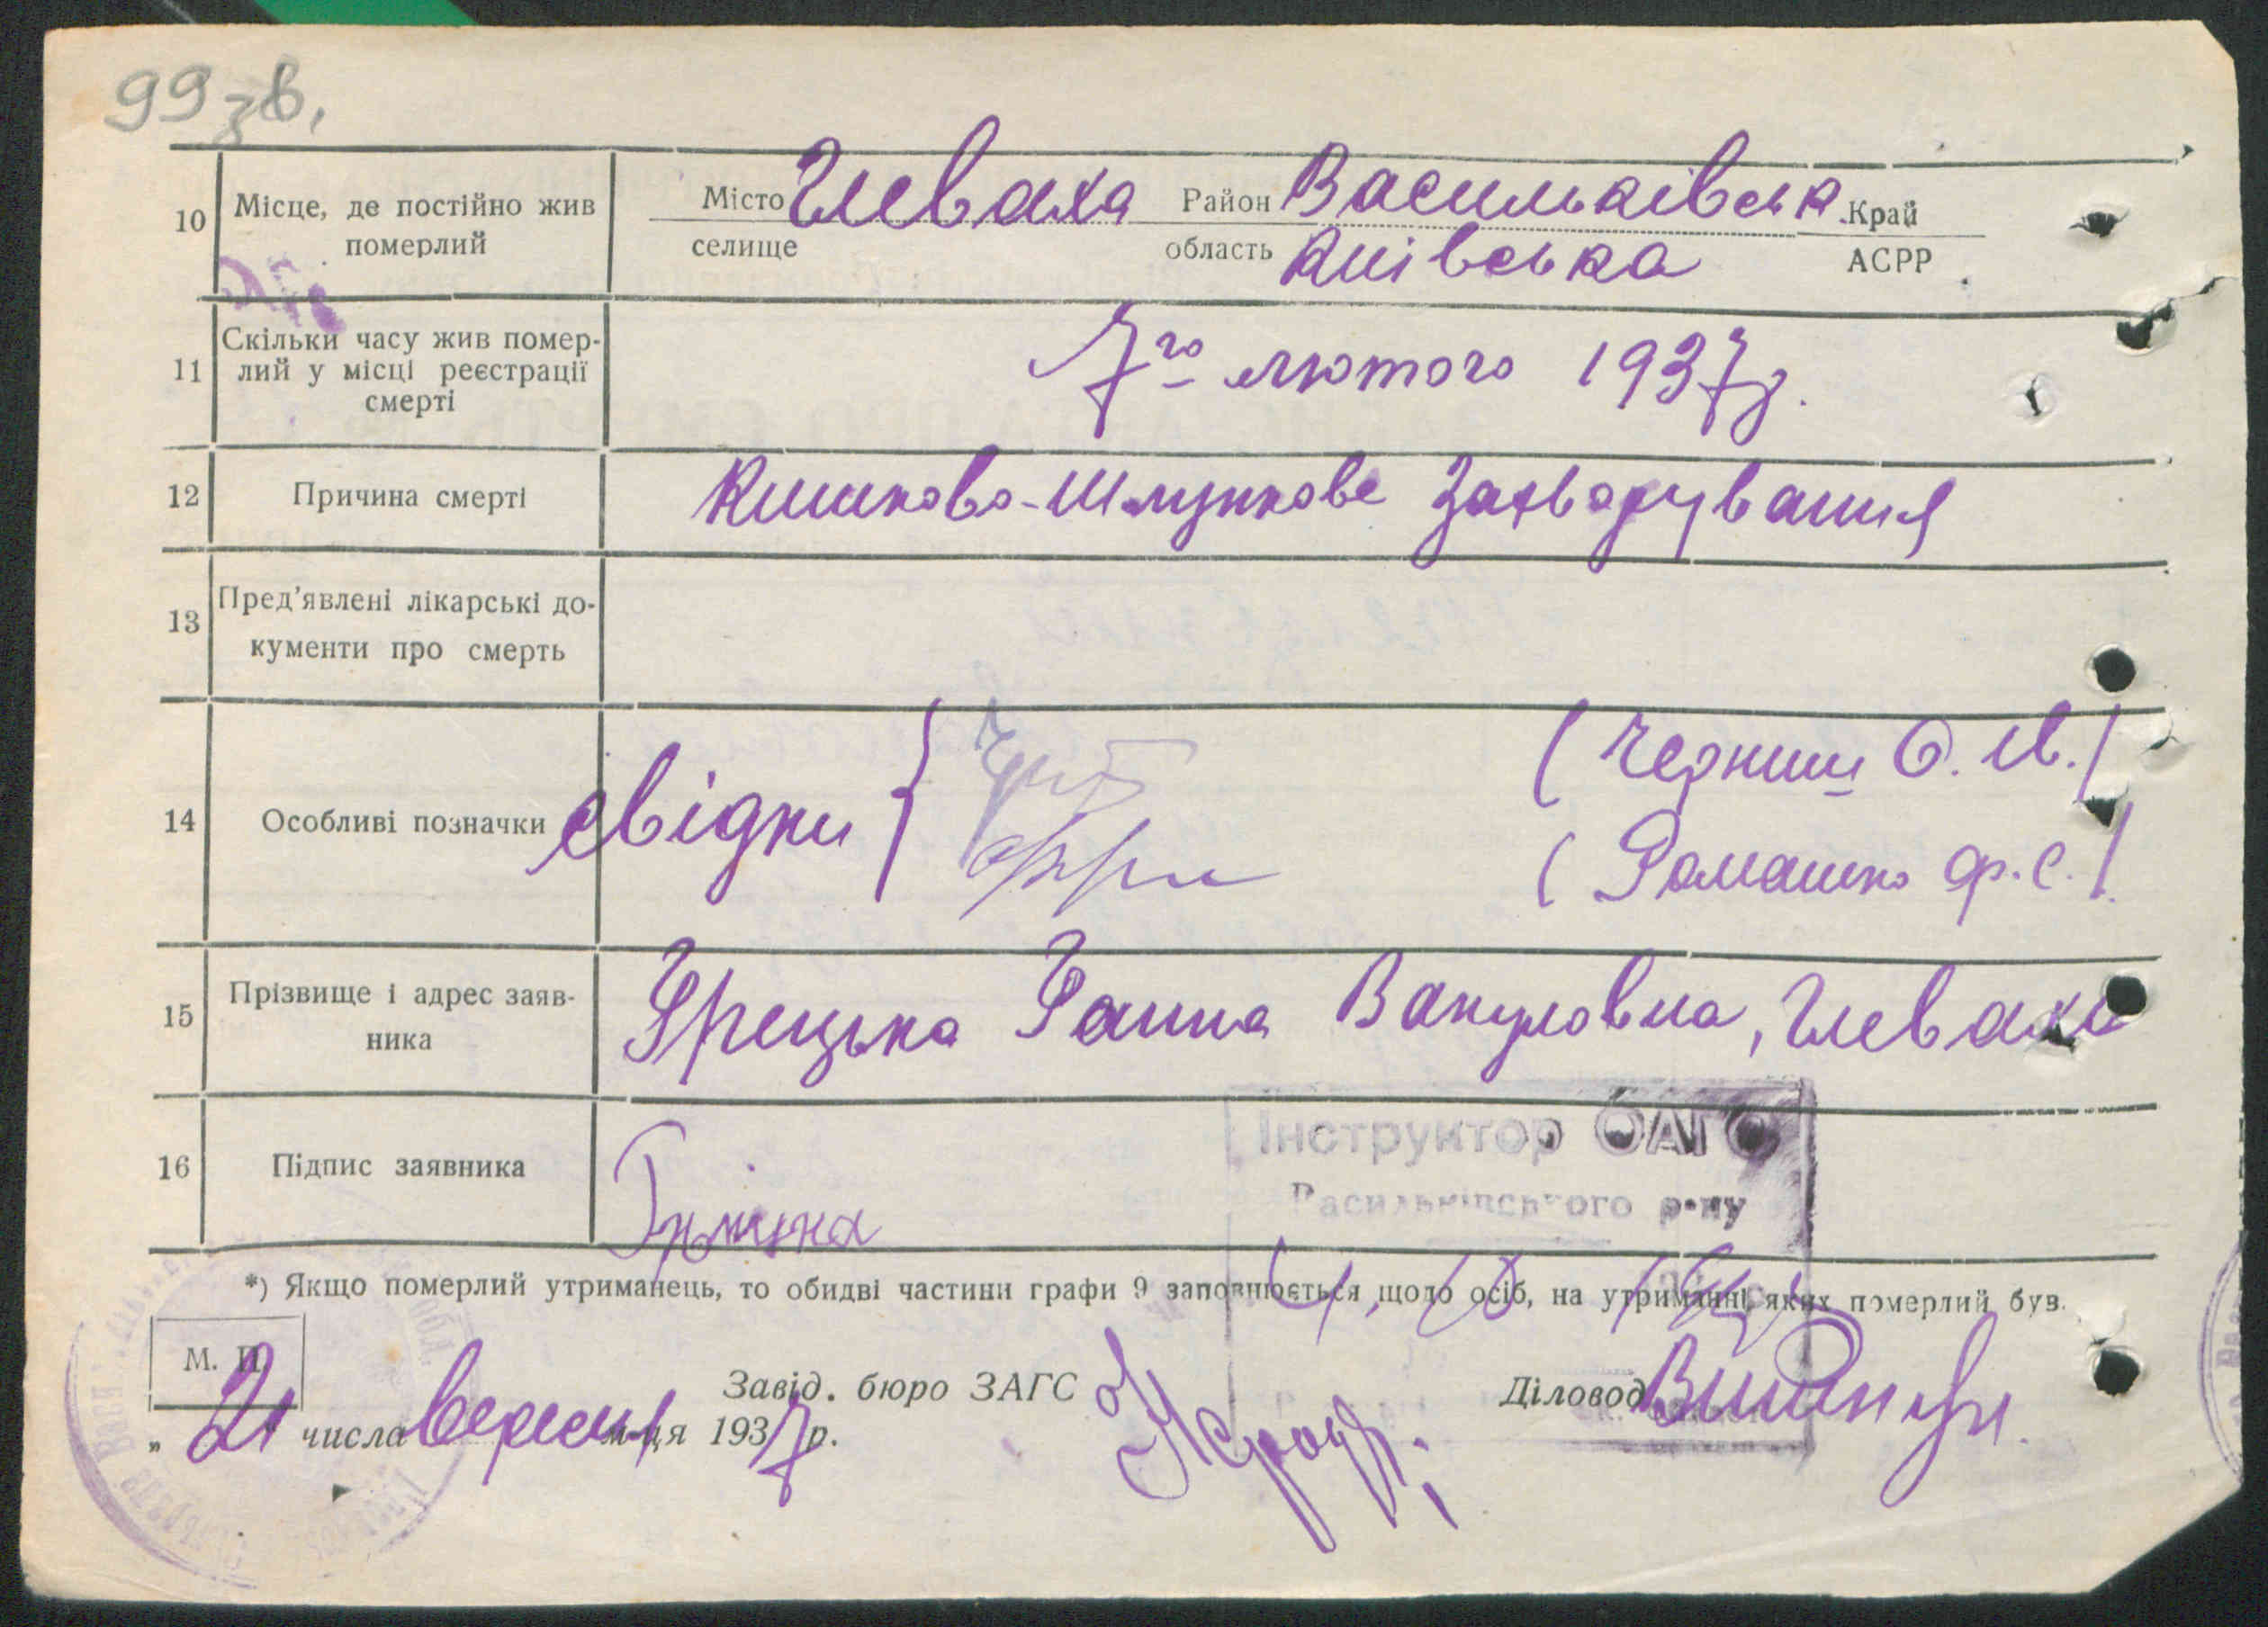 99 зв.
10 Місце, де постійно жив померлий
Місто Глеваха Район Васильківськ. Край
селище область Київська АСРР
11 Скільки часу жив помер-
лий у місці реєстрації
смерті
7го лютого 1937р.
12 Причина смерті Кишково-шлункове захворування
13 Пред'явлені лікарські до-
кументи про смерть
14 Особливі позначки свідки { (Черниш О. М.)
(Ромашко Ф. С.)
15 Прізвище і адрес заяв-
ника
Грецька Ганна Вакуловна, Глеваха
Інструктор ОАГС
Васильківського р-ну
16 Підпис заявника
*) Якщо померлий утриманець, то обидві частини графи 9 заповнюється щодо осіб, на утриманні яких померлий був.
М. П.
Завід. бюро ЗАГС Діловод
„ 21 числа вересня м-ця 1937 р.